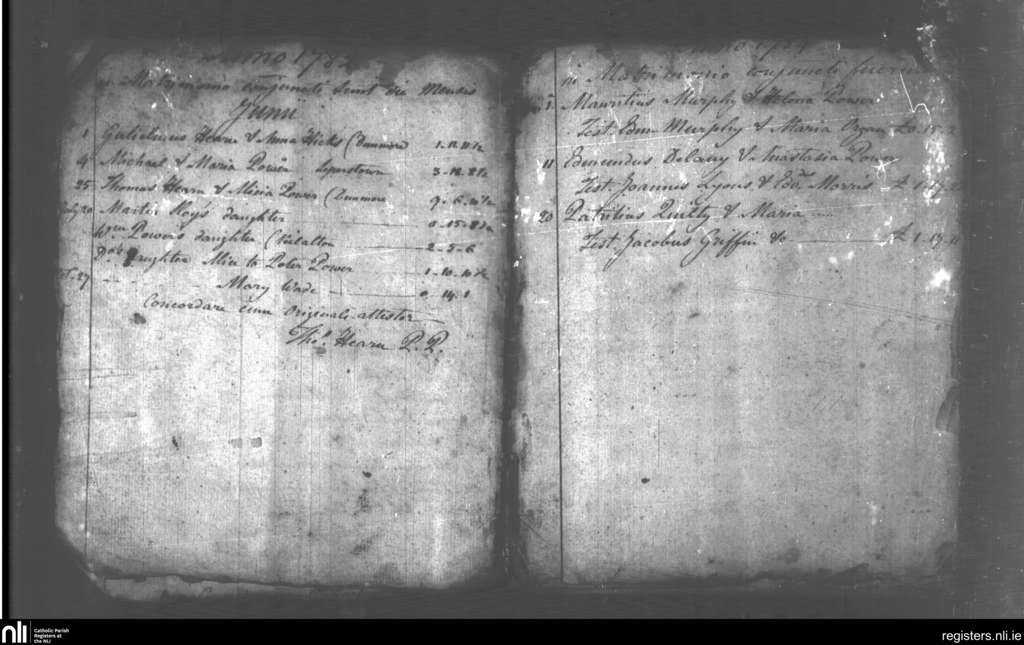 Anno 178
in Matrimonio conjuncti sunt die Mensis
Junii
1 Gulielmus Hearn & Anna Hicks (Dunmore
9 Michael & Maria Power
25 Thomas Hearn & Maria Power (Dunmore
July 20 Martin Hoys daughter
Wm Powers daughter (Kilcalton 2-5-6
Daughter Mia to Peter Power 1-10-10½
27 Mary Wade 0-14-1
Concordare cum Originali attestor
Thos. Hearn P.P.
Anno 178
in Matrimonio conjuncti fuerunt
1 Mauritius Murphy & Helena Power
Test. Edm Murphy & Maria Organ £0-15-2
11 Edmundus Delany & Anastasia Power
Test. Joannes Lyons & Edds Morris £1-17-
20 Patritius Quilty & Maria
Test. Jacobus Griffin &c £1-17-11
nli
Catholic Parish
Registers at
the NLI
registers.nli.ie